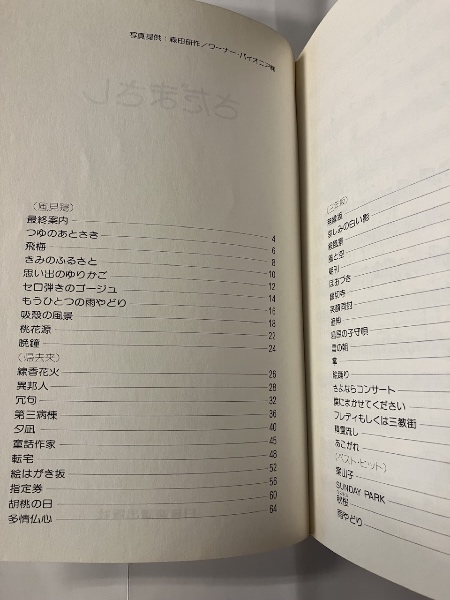 写真提供：森田研作／ワーナー・パイオニア㈱
さだまさし
〈風見鶏〉
最終案内 4
つゆのあとさき 6
飛梅 8
きみのふるさと 10
思い出のゆりかご 12
セロ弾きのゴーシュ 14
もうひとつの雨やどり 16
吸殻の風景 18
桃花源 22
晩鐘 24
〈帰去来〉
線香花火 26
異邦人 28
冗句 32
第三病棟 36
夕凪 40
童話作家 45
転宅 48
絵はがき坂 52
指定券 56
胡桃の日 60
多情仏心 64
無縁坂
哀しみの白い影
朝刊
ほおづき
縁切寺
笑顔同封
雲の船
童
殺陣
さよならコンサート
僕にまかせてください
フレディもしくは三教街
精霊流し
あこがれ
〈ベスト・ヒット〉
案山子
SUNDAY PARK
雨やどり